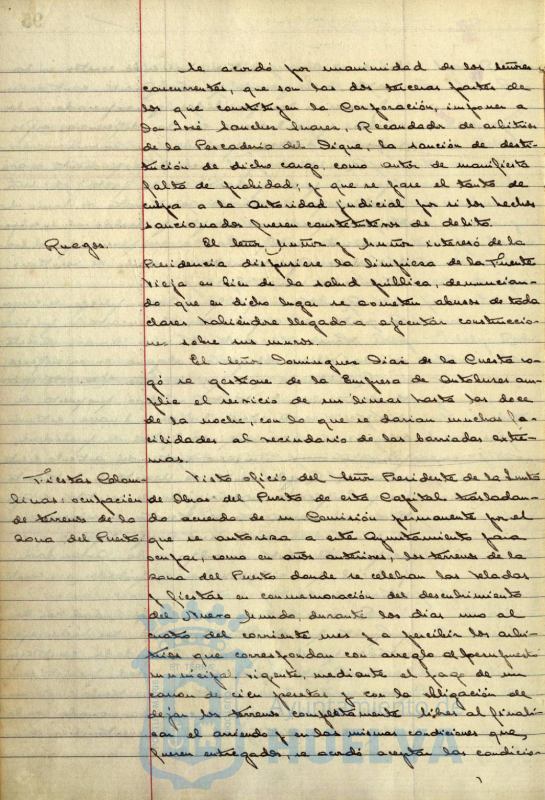 95
Se acordó por unanimidad de los señores
concurrentes, que son las dos terceras partes de
los que constituyen la Corporación, imponer a
Don José Sanchez Suarez, Recaudador de arbitrios
de la Pescadería del Dique, la sanción de desti-
tución de dicho cargo, como autor de manifiesta
falta de probidad; y que se pase el tanto de
culpa a la Autoridad judicial por si los hechos
sancionados fueren constitutivos de delito.
Ruegos.
El Señor Muñoz y Muñoz interesó de la
Presidencia dispusiere la limpieza de la Fuente
Vieja en bien de la salud pública, denuncian-
do que en dicho lugar se cometen abusos de toda
clases habiéndose llegado a ejecutar construccio-
nes sobre sus muros.
El Señor Dominguez Diaz de la Cuesta ro-
gó se gestione de la Empresa de Autobuses am-
plie el servicio de sus lineas hasta las doce
de la noche, con lo que se darian muchas fa-
cilidades al vecindario de las barriadas extre-
mas.
Fiestas Colom-
binas: ocupación
de terrenos de la
zona del Puerto.
Visto oficio del Señor Presidente de la Junta
de Obras del Puerto de esta Capital trasladan-
do acuerdo de su Comisión permanente por el
que se autoriza a este Ayuntamiento para
ocupar, como en años anteriores, los terrenos de la
zona del Puerto donde se celebran las veladas
y fiestas en conmemoración del descubrimiento
del Nuevo Mundo, durante los dias uno al
cuatro del corriente mes y a percibir los arbi-
trios que correspondan con arreglo al presupuesto
municipal vigente, mediante el pago de un
canon de cien pesetas y con la obligación de
dejar los terrenos completamente libres al finali-
zar el arriendo y en las mismas condiciones que
fueren entregados, se acordó aceptar las condicio-
Ayuntamiento de
HUELVA